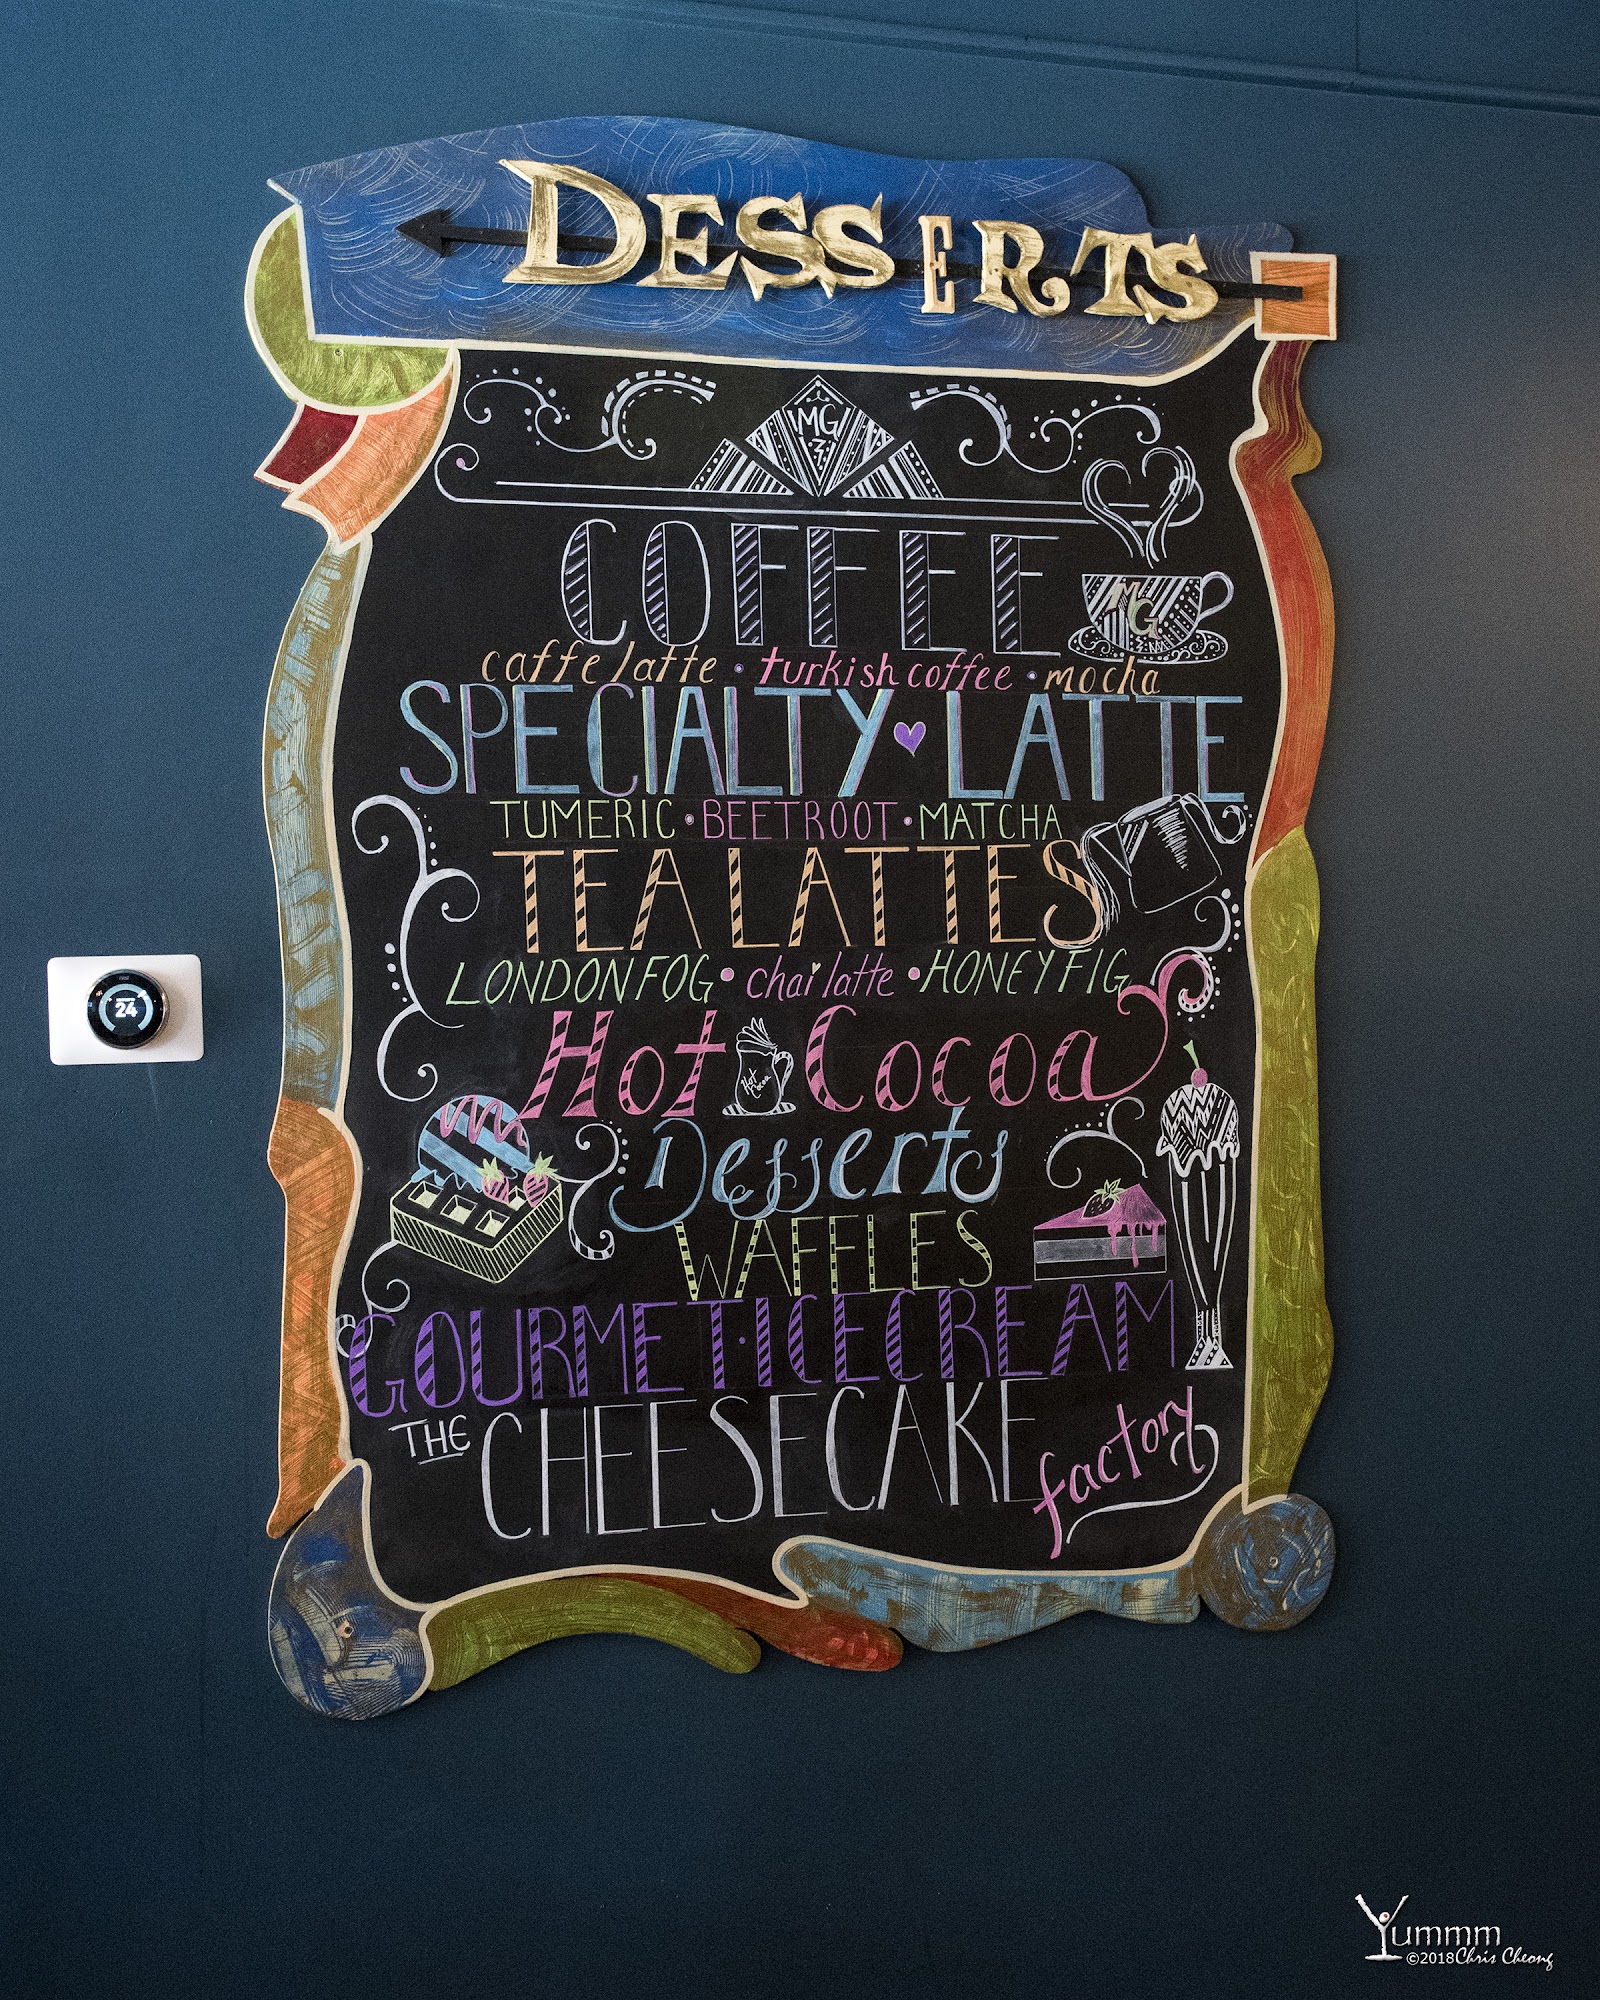 DESSERTS
MG
COFFEE
MG
caffe latte • turkish coffee • mocha
SPECIALTY LATTE
TUMERIC • BEETROOT • MATCHA
TEA LATTES
LONDON FOG • chai latte • HONEY FIG
24
Hot Cocoa
Hot Cocoa
Desserts
WAFFLES
GOURMET • ICECREAM
THE CHEESECAKE factory
Yummm
©2018 Chris Cheong